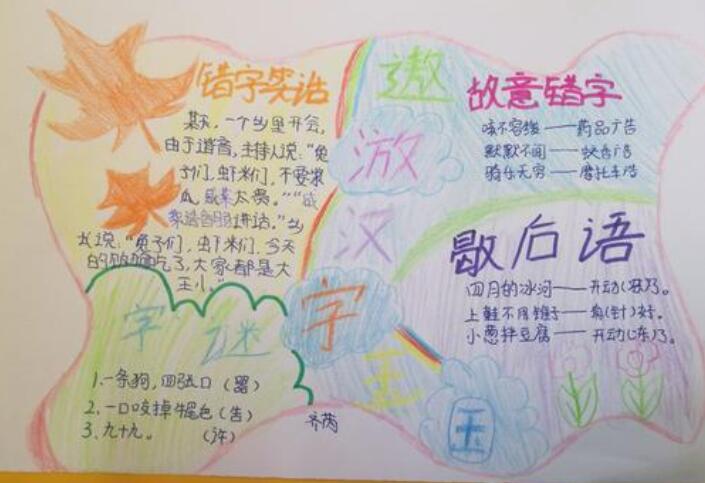 遨游汉字王
王
错字笑话
某天,一个乡里开会,
由于谐音,主持人说:“兔
子们,虾米们,不要浆
瓜,咸菜太贵。”“咸
讲话。”乡
长说:“兔子们,虾米们,今天
的吃了,大家都是大
王八。”
故意错字
咳不容缓——药品广告
默默不闻——蚊香广告
骑乐无穷——摩托车
歇后语
四月的冰河——开动(冻)了。
上鞋不用锥子——(针)好。
小葱拌豆腐——
字谜
1.一条狗,四张口(器)
2.一口咬掉牛尾巴(告)
3.九十九。(白)
齐芮